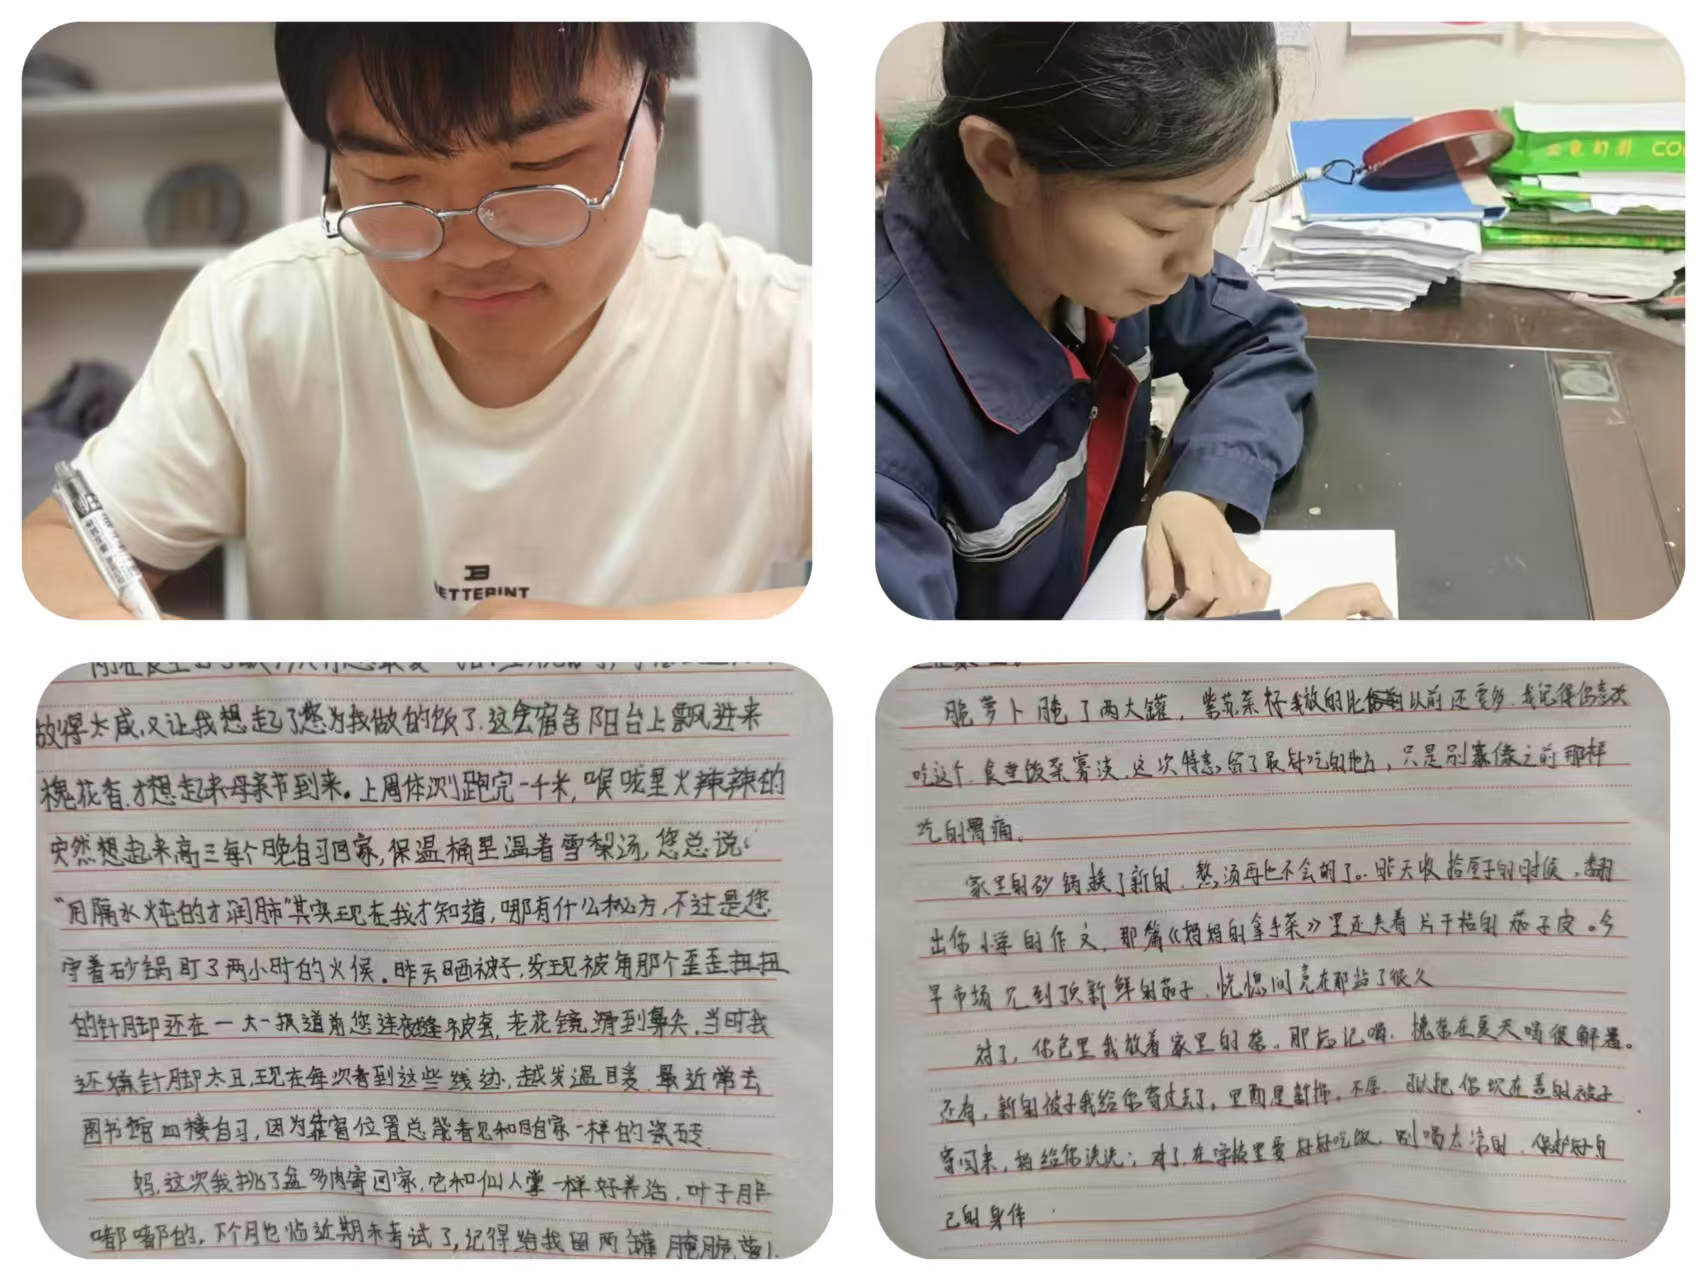 BETTERINT
CO
放得太咸,又让我想起了您为我做的饭了.这会宿舍阳台上飘进来
槐花香,才想起来母亲节到来。上周体测跑完一千米,喉咙里火辣辣的
突然想起来高三每个晚自习回家,保温桶里温着雪梨汤,您总说:
“用隔水炖的才润肺”其实现在我才知道,哪有什么秘方,不过是您
守着砂锅盯了两小时的火候。昨天晒被子,发现被角那个歪歪扭扭
的针脚还在一大一报道前您连夜缝被套,老花镜滑到鼻尖,当时我
还嫌针脚太丑,现在每次看到这些线边,越发温暖.最近常去
图书馆四楼自习,因为靠窗位置总能看见和咱家一样的瓷砖
妈,这次我挑了盆多肉寄回家,它和仙人掌一样好养活,叶子胖
嘟嘟的,下个月也临近期末考试了,记得给我留两罐腌脆萝卜
脆萝卜腌了两大罐,紫苏菜籽我放的比以前还要多,我记得你喜欢
吃这个,食堂饭菜寡淡,这次特意留了最好吃的地方,只是别像之前那样
吃的胃痛。
家里的砂锅换了新的,熬汤再也不会糊了。昨天收拾屋子的时候,翻
出你小学的作文,那篇《妈妈的拿手菜》里还夹着片干枯的茄子皮。今
早市场见到顶新鲜的茄子,恍惚间竟在那站了很久
对了,你包里我放着家里的茶,那后记喝,槐茶在夏天喝很解暑。
还有,新的被子我给你寄过去了,里面是新棉,不厚,可以把你现在盖的被子
寄回来,妈给你洗洗;对了,在学校里要好好吃饭,别喝太凉的,保护好自
己的身体.